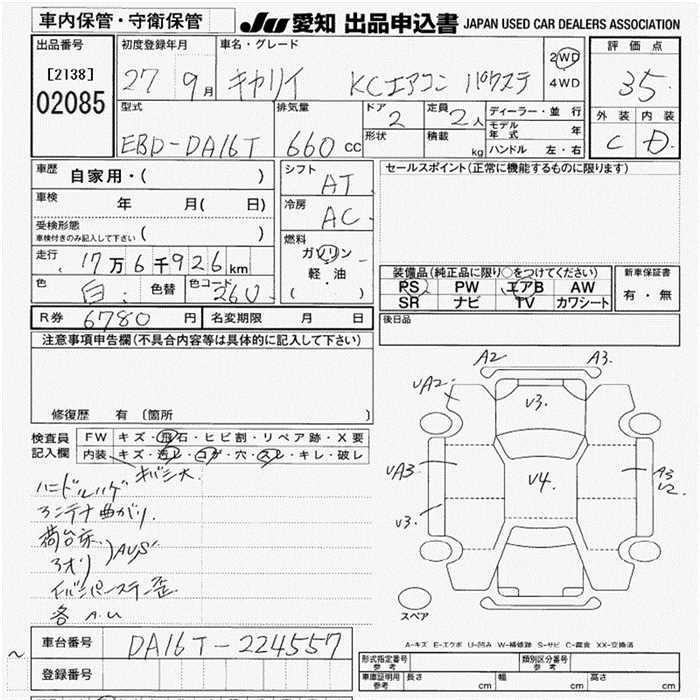 車内保管・守衛保管
JU 愛知 出品申込書 JAPAN USED CAR DEALERS ASSOCIATION
出品番号
[2138]
02085
初度登録年月
27 9月
車名・グレード
キャリイ KCエアコン パワステ
2WD
4WD
評価点
3.5
外装 内装
C D
型式
EBD-DA16T
排気量
660 cc
ドア
2
形状
定員
2人
積載
kg
ディーラー・並行
モデル年式 年
ハンドル 左・右
車歴
自家用・( )
車検
年 月( 日)
受検形態
車検付きのみ記入して下さい ( )
走行
17万6千926km
色
白
色替
色コード
26U
シフト
AT
冷房
AC
燃料
ガソリン
軽・油
( )
セールスポイント(正常に機能するものに限ります)
装備品(純正品に限り○をつけてください)
PS PW エアB AW
SR ナビ TV カワシート
新車保証書
有・無
R券 6780円
名変期限 月 日
後日品
注意事項申告欄(不具合内容等は具体的に記入して下さい)
修復歴 有 [箇所 ]
検査員
記入欄
FW キズ・飛石・ヒビ割・リペア跡・X要
内装 キズ・汚レ・コゲ・穴・スレ・キレ・破レ
キバミ大
ハンドルハゲ
アンテナ曲がり
荷台床
アオリ
AUS
各A.U
A2 A3
UA2
V3.
UA3
V4
A3
U2
V3.
スペア
A-キズ E-エクボ U-凹み W-補修跡 S-サビ C-腐食 XX-交換済
車台番号
DA16T-224557
登録番号
形式指定番号
参考
類別区分番号
参考
車庫証明用
参考
長さ cm
幅 cm
高さ cm